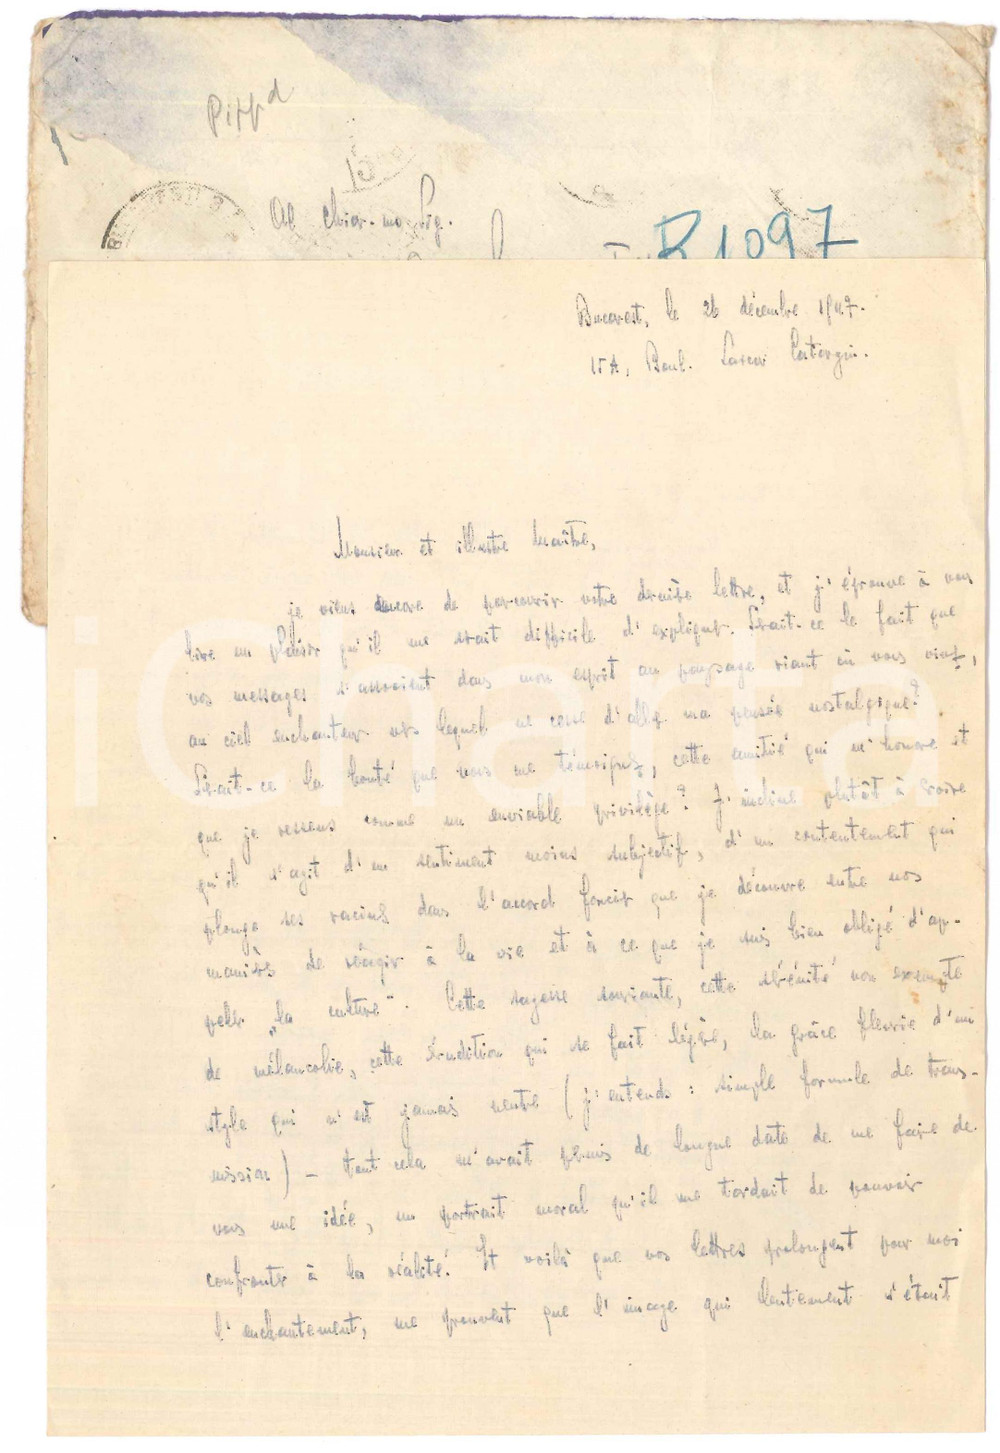 Al Chiar.mo Sig.
R 1097
Bucarest, le 26 décembre 1947.
15A, Boul. Lascar Catargiu.
Monsieur et illustre Maître,
je viens encore de parcourir votre dernière lettre, et j'éprouve à vous
lire un plaisir qu'il me serait difficile d'expliquer. Serait-ce le fait que
vos messages s'associent dans mon esprit au paysage riant où vous vivez,
au ciel enchanteur vers lequel ne cesse d'aller ma pensée nostalgique?
Serait-ce la bonté que vous me témoignez, cette amitié qui m'honore et
que je ressens comme un enviable privilège? J'incline plutôt à croire
qu'il s'agit d'un sentiment moins subjectif, d'un contentement qui
plonge ses racines dans l'accord foncier que je découvre entre nos
manières de réagir à la vie et à ce que je suis bien obligé d'ap-
peler „la culture". Cette sagesse souriante, cette sérénité non exempte
de mélancolie, cette érudition qui se fait légère, la grâce fleurie d'un
style qui n'est jamais neutre (j'entends: simple formule de trans-
mission) – tout cela m'avait permis de longue date de me faire de
vous une idée, un portrait moral qu'il me tardait de pouvoir
confronter à la réalité. Et voilà que vos lettres prolongent pour moi
l'enchantement, me prouvent que l'image qui lentement s'était